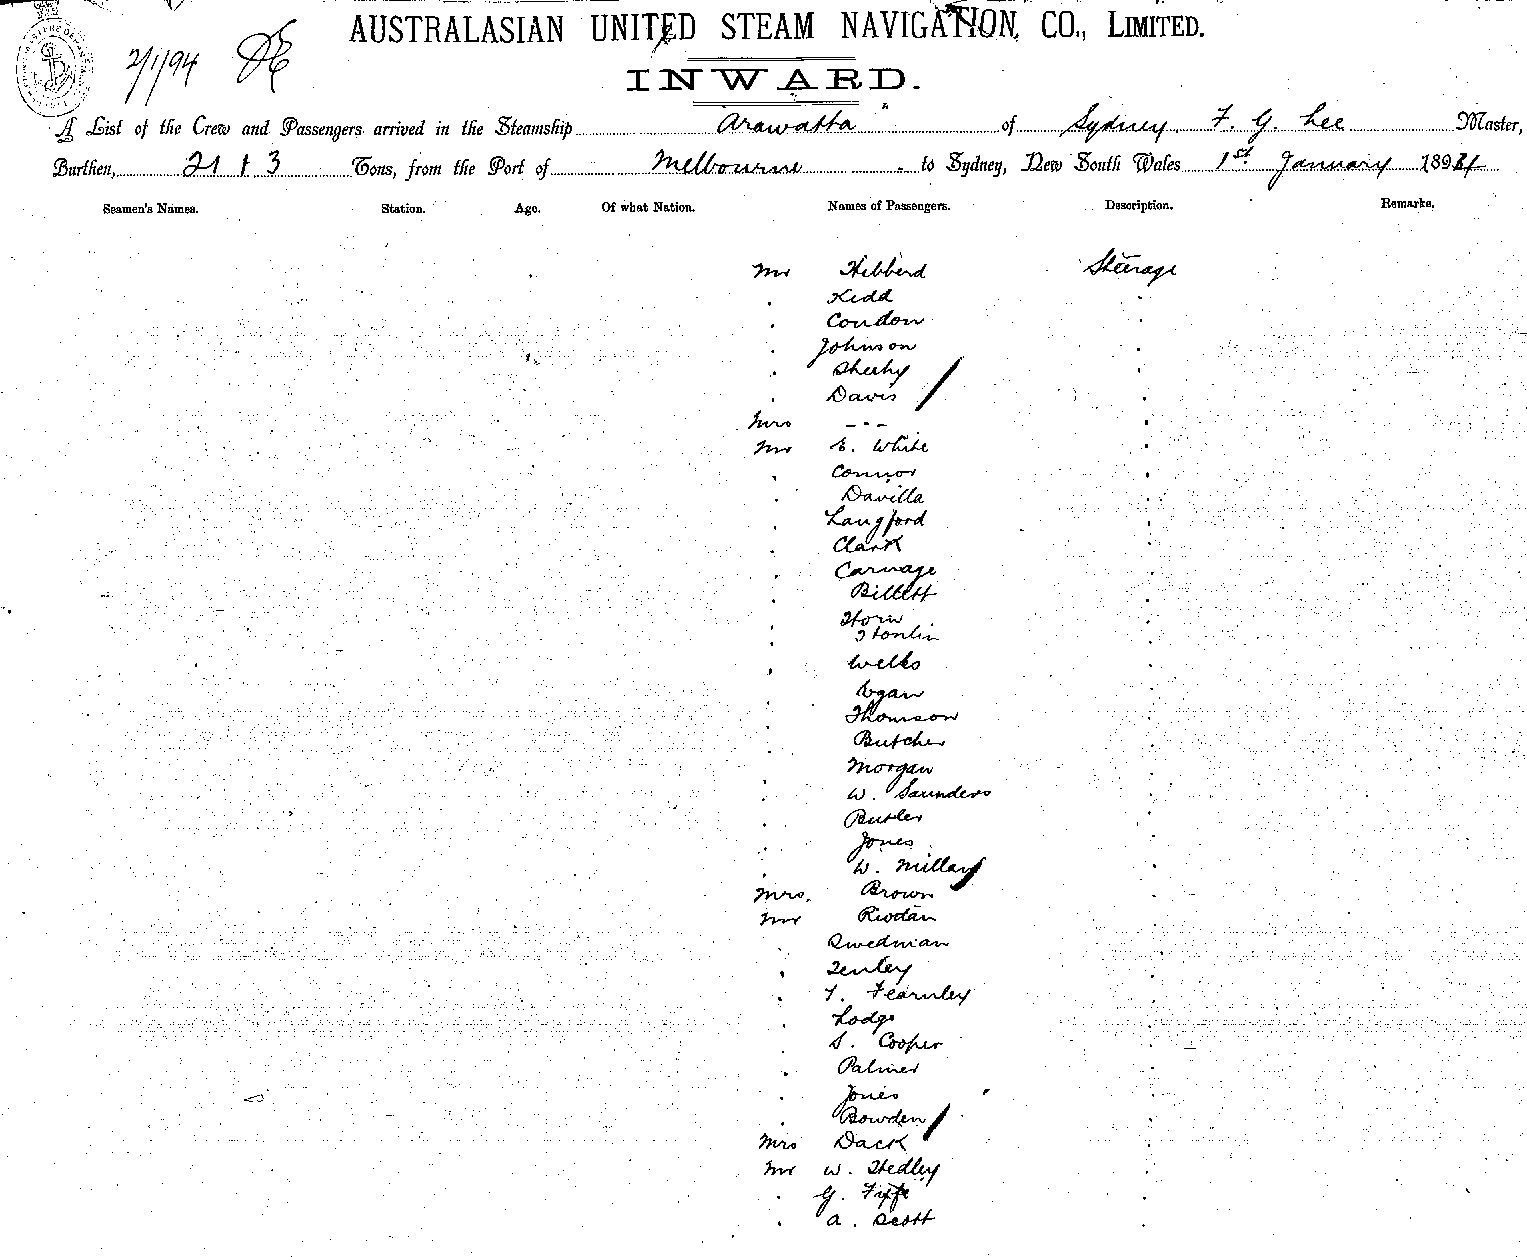 AUSTRALASIAN UNITED STEAM NAVIGATION, CO., LIMITED.
2/1/94
INWARD.
A List of the Crew and Passengers arrived in the Steamship Arawatta " of Sydney. F. G. Lee Master,
Burthen, 21 1 3 Tons, from the Port of Melbourne to Sydney, New South Wales 1st January 1894
Seamen's Names. Station. Age. Of what Nation. Names of Passengers. Description. Remarks.
Mr Hibberd Steerage
Kidd
Condon
Johnson
Sheehy
Davis
Mrs - - -
Mr E. White
Connor
Davilla
Langford
Clark
Billett
Horn
Wells
Egan
Thomson
Butcher
Morgan
W. Saunders
Butler
Jones
W. Millar
Mrs. Brown
Mr Riodan
T. Fearnley
Lodge
S. Cooper
Palmer
Jones
Bowden
Mrs Dack
Mr W. Hedley
G. Fyffe
A. Scott